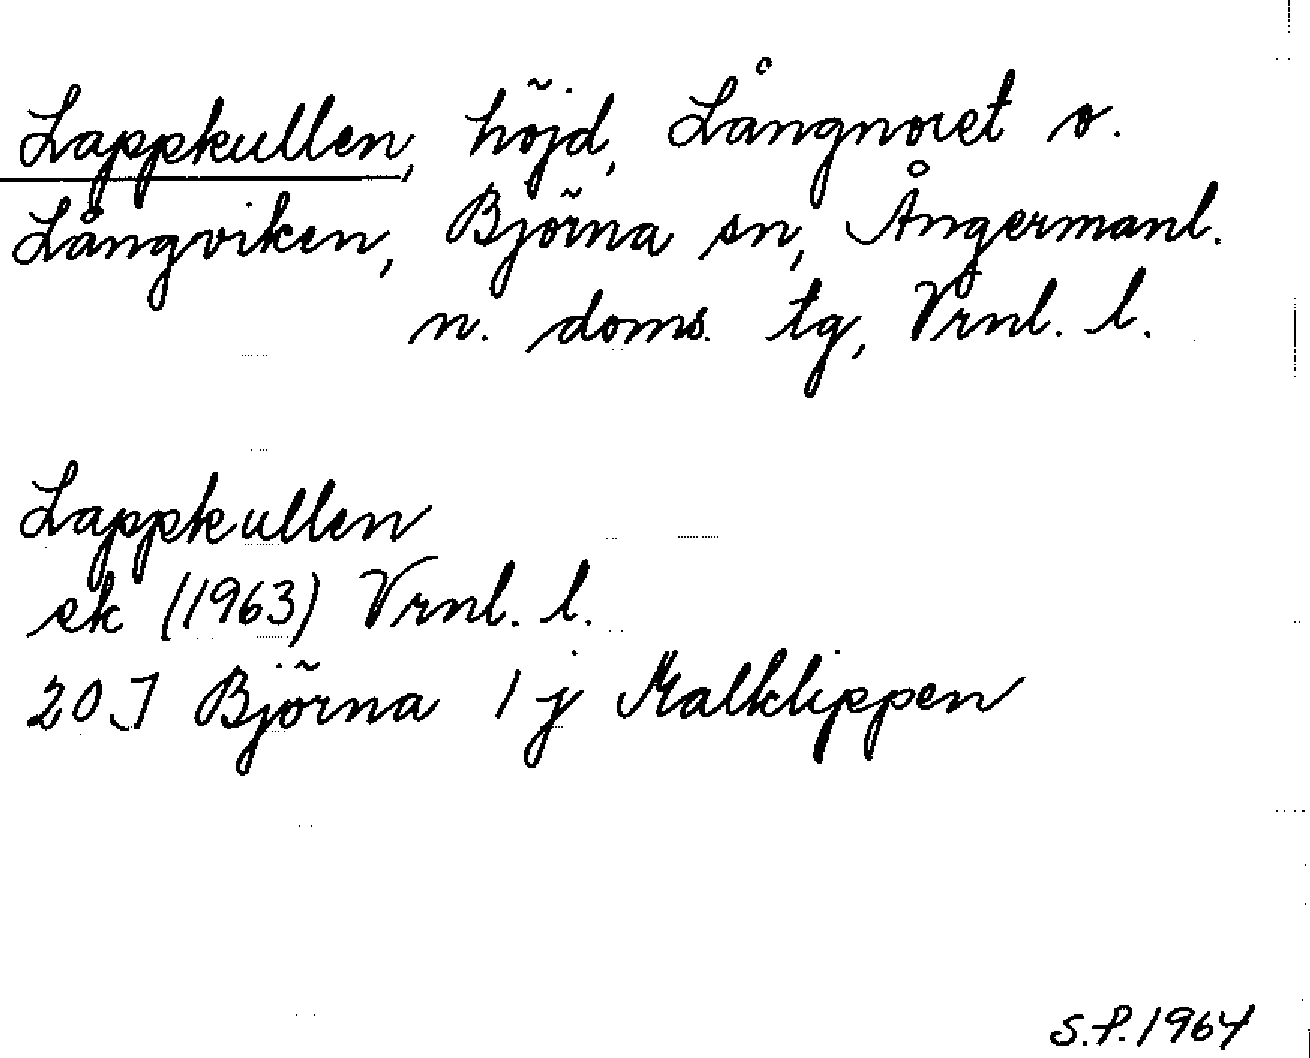 Lappkullen, höjd, Långnoret o.
Långviken, Björna sn, Ångermanl.
n. doms. tg, Vrnl. l.
Lappkullen
ek (1963) Vrnl. l.
20 J Björna 1 j Malklippen
S.P. 1964